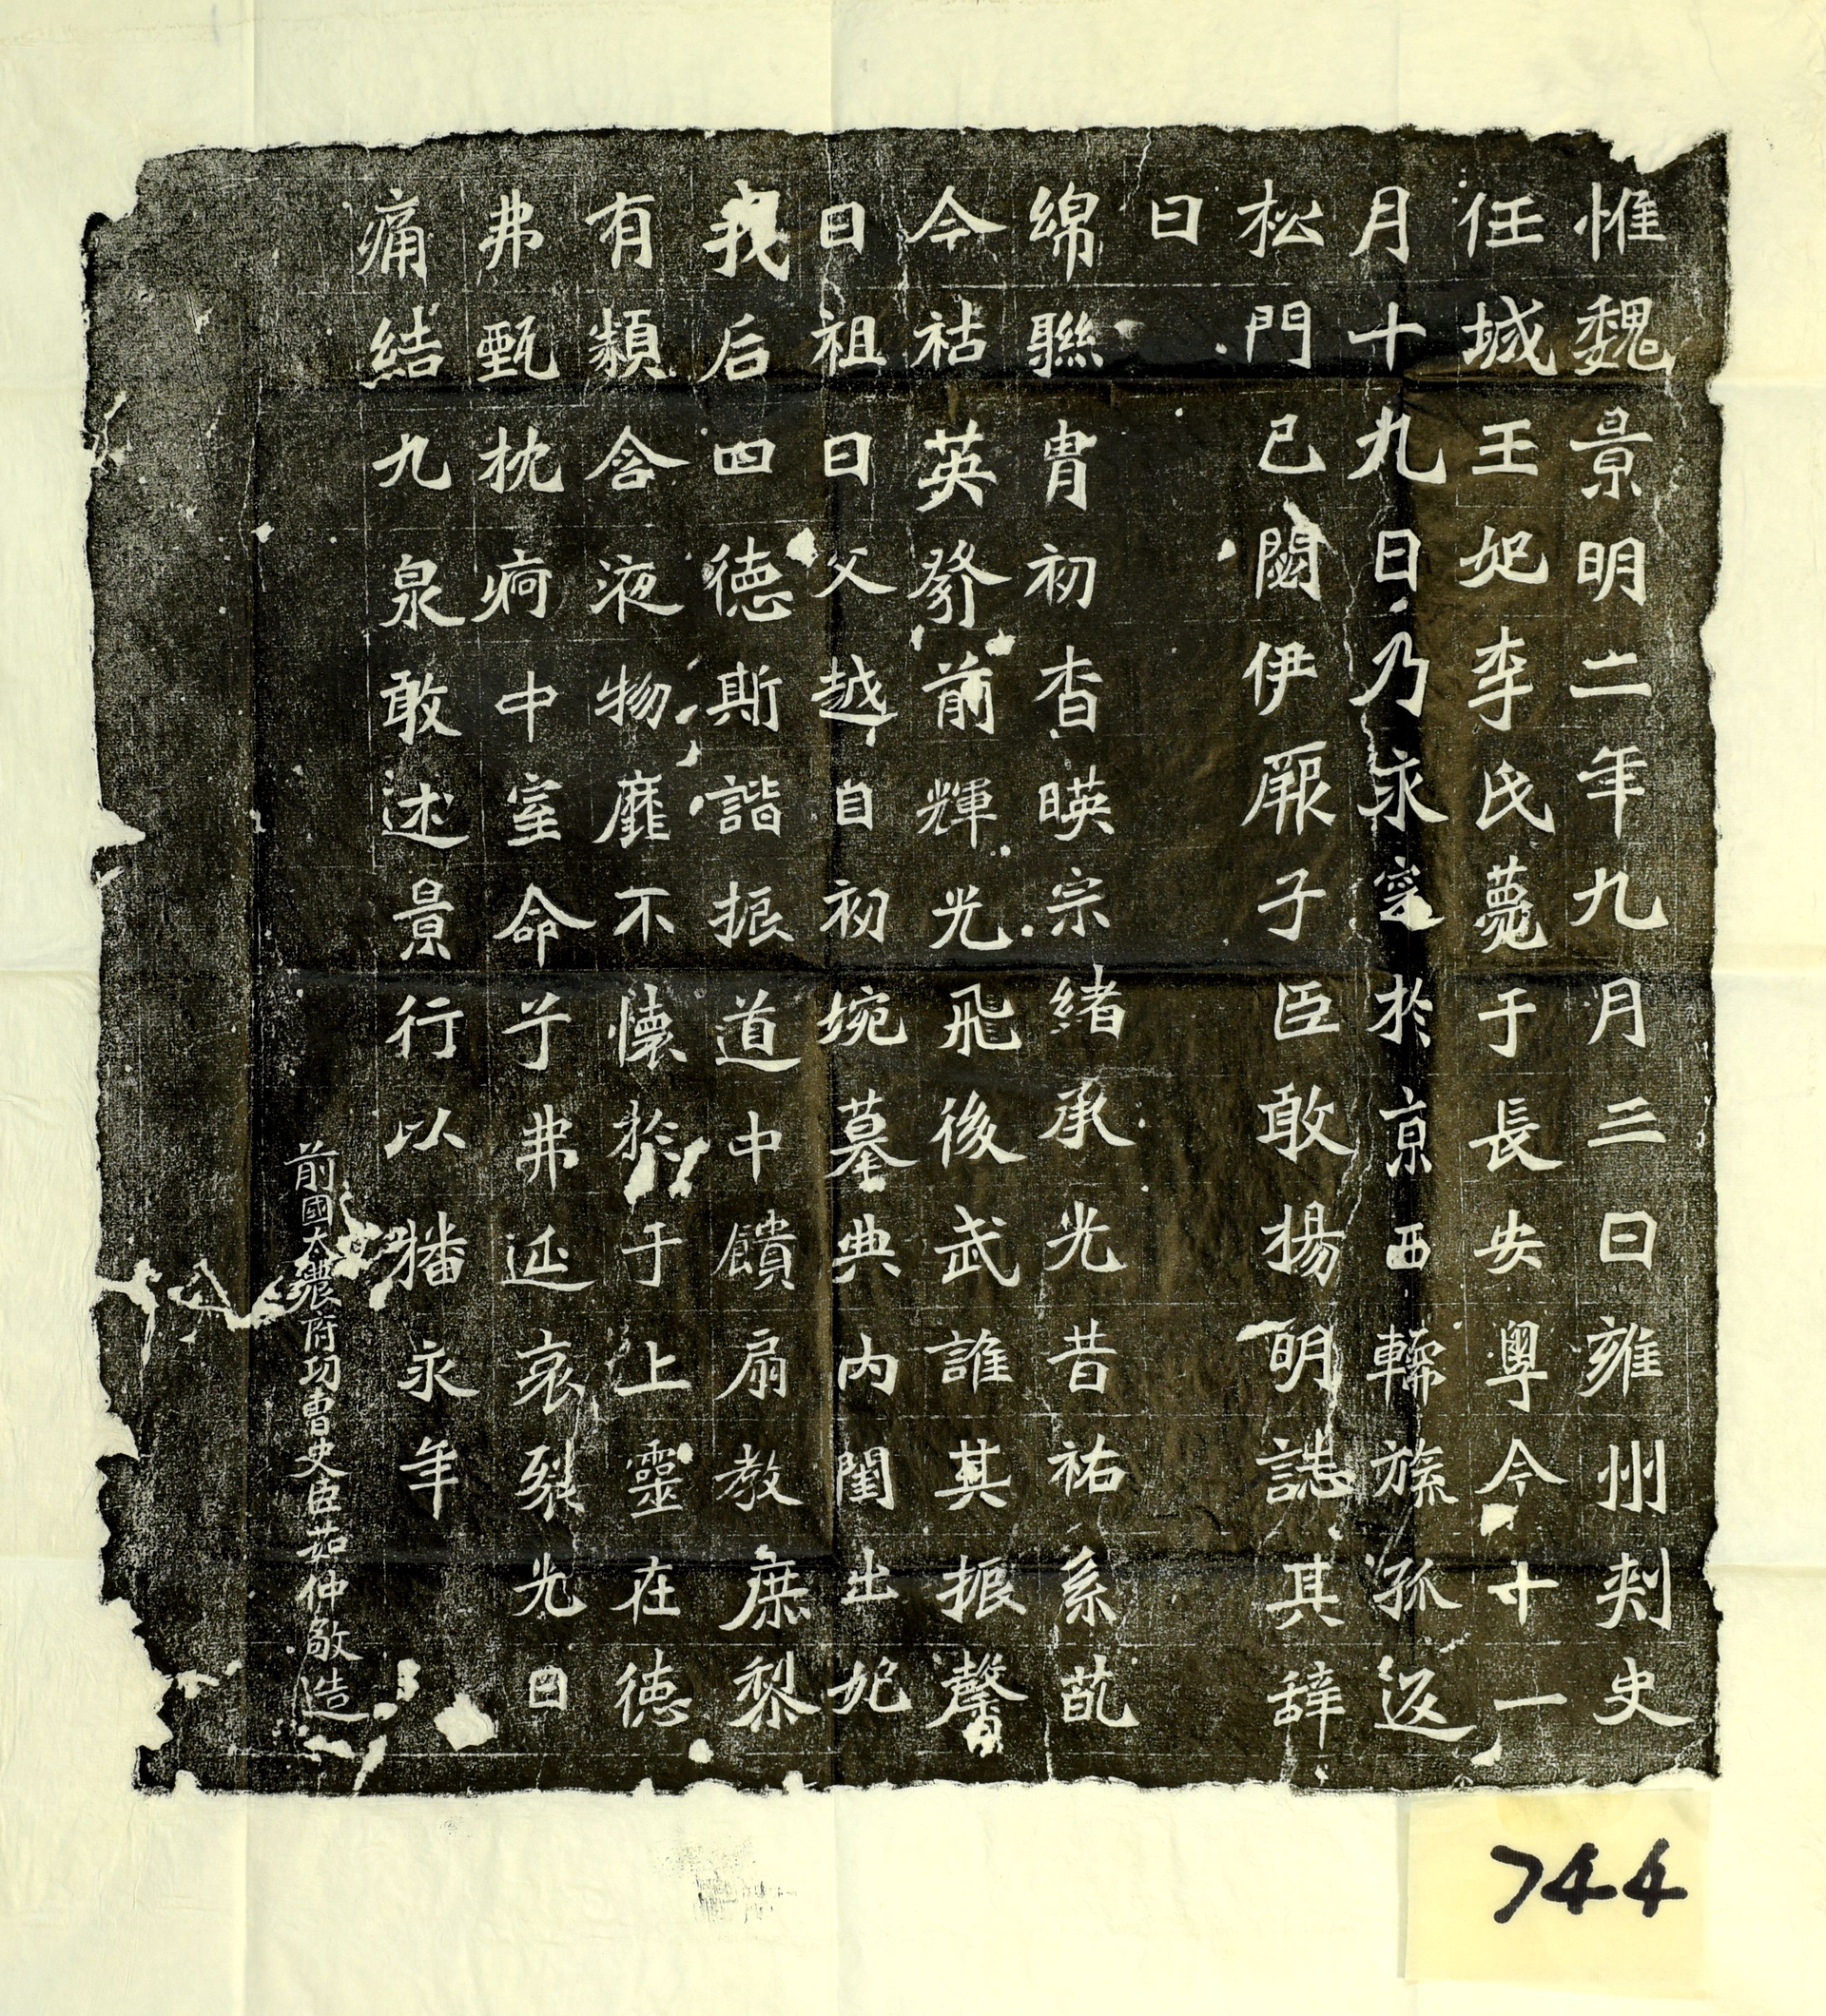 惟魏景明二年九月三日雍州刾史
任城王妃李氏薨于長安粤今十一
月十九日乃永窆於京西轜旐孤返
松門已閟伊厥子臣敢揚明誌其辞
曰
綿聯胄初杳暎宗緒承光昔祐系蓺
今祜英發前輝光飛後武誰其振馨
曰祖曰父越自初婉墓典内闈出妃
我后四德斯諧振道中饋扇教庶黎
有類含液物靡不懷於于上靈在德
弗甄枕痾中室命兮弗延哀裂光日
痛結九泉敢述景行以播永年
前國太農府功曹史臣茹仲敬造
744